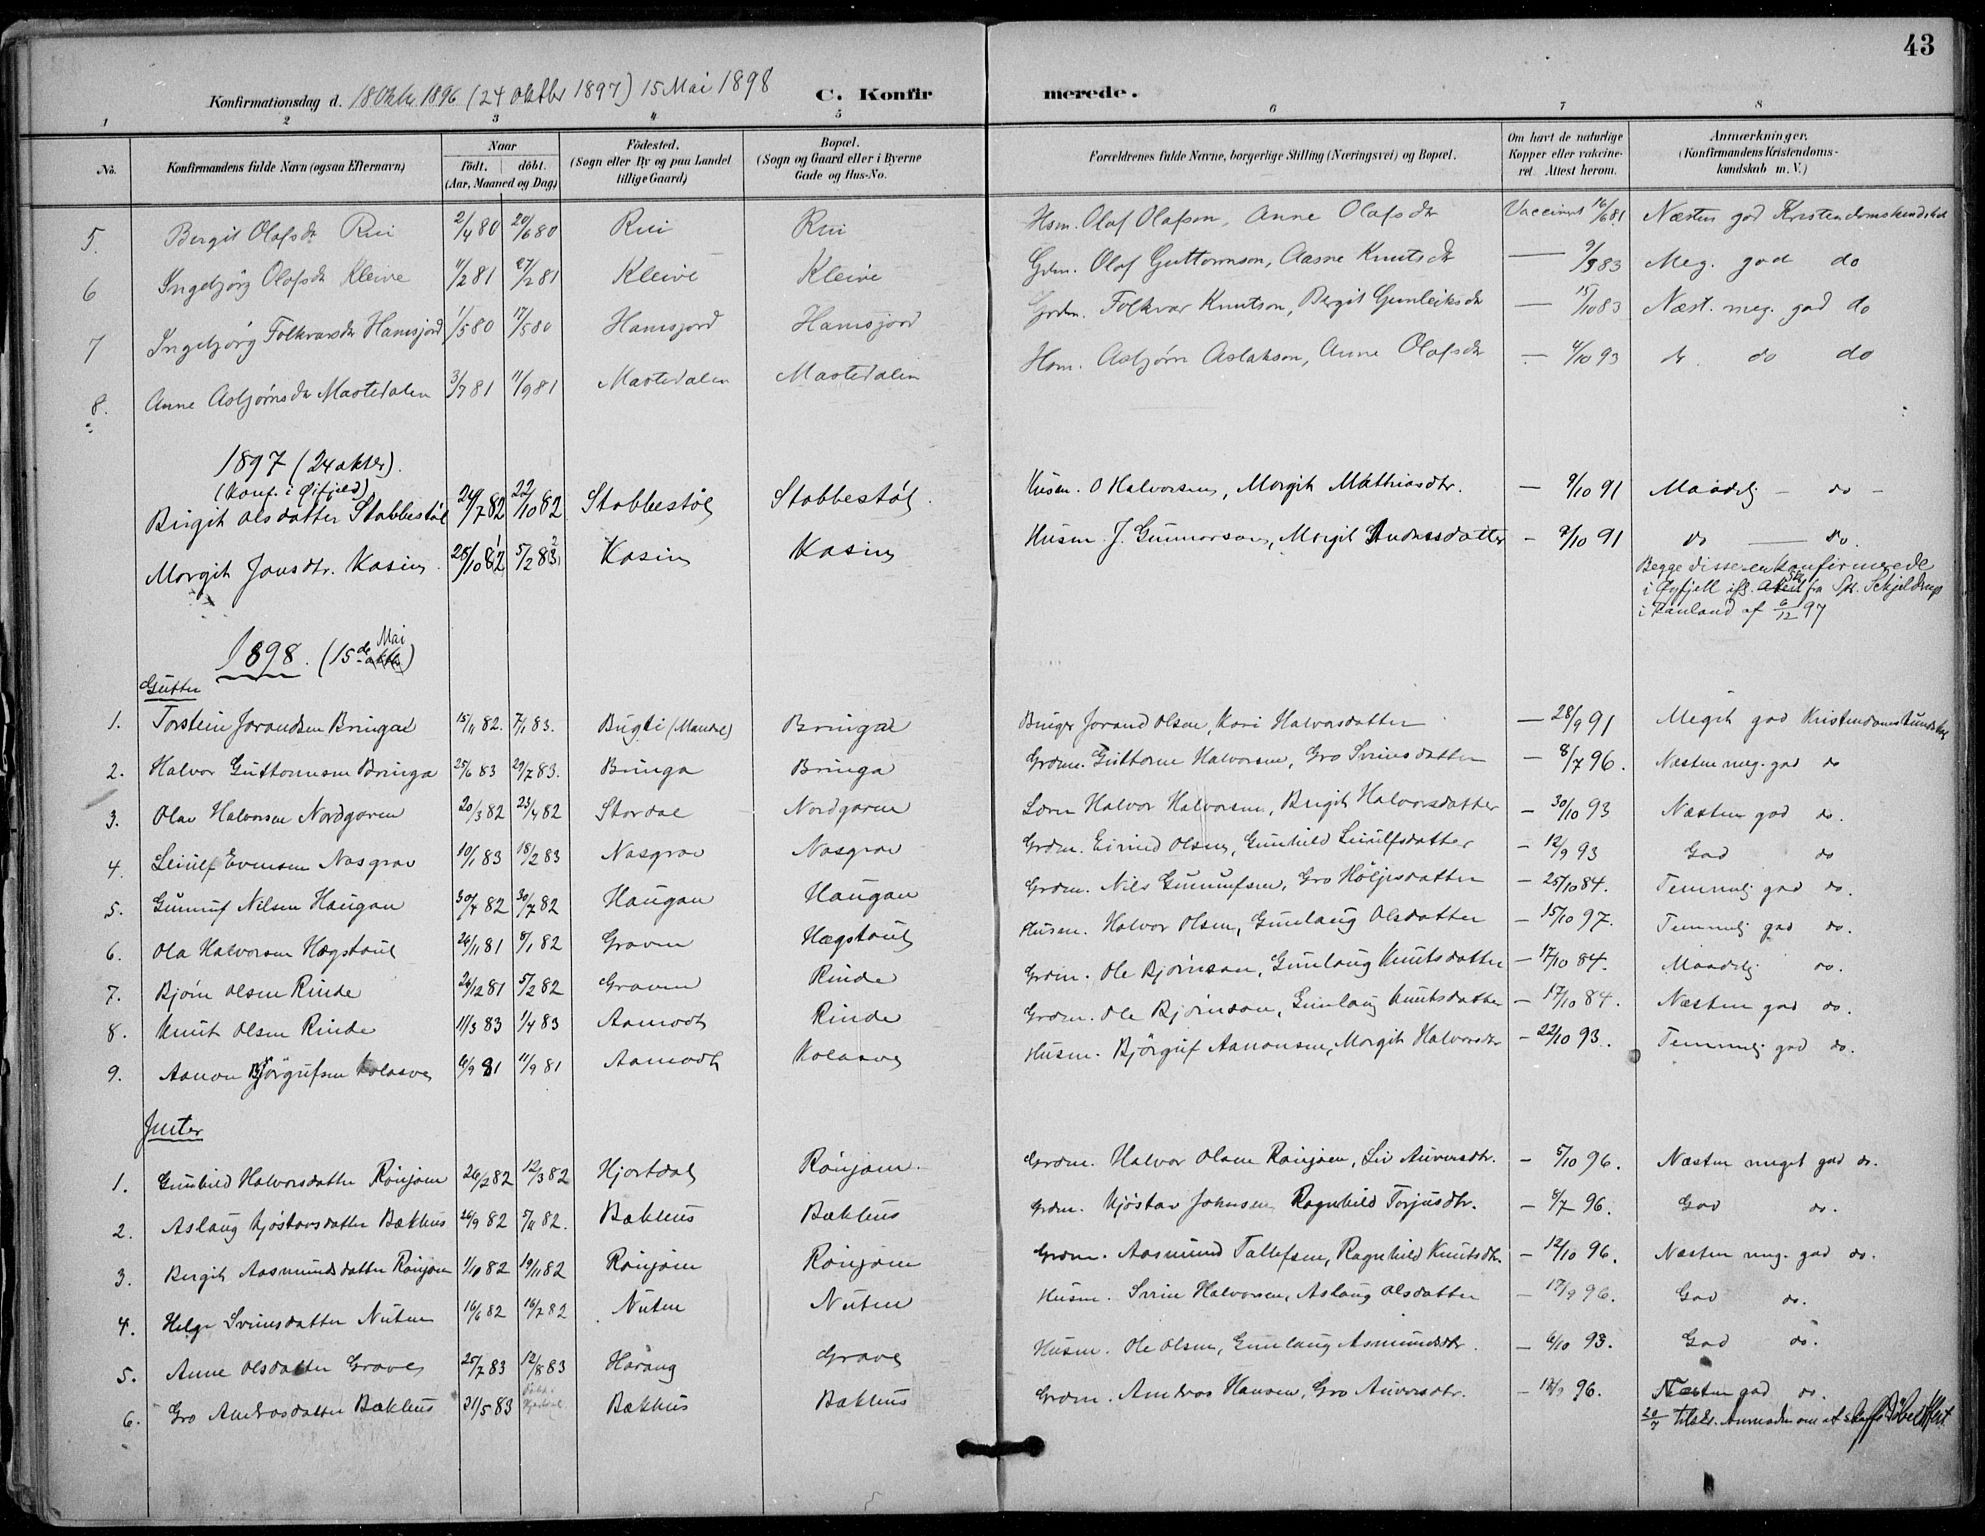 43
Konfirmationsdag d. 18 Oktbr. 1896 (24 oktbr 1897) 15 Mai 1898 C. Konfirmerede.
1 2 3 4 5 6 7 8
No. Konfirmandens fulde Navn (ogsaa Efternavn) Naar födt. döbt. (Aar, Maaned og Dag) Födested. (Sogn eller By og paa Landet tillige Gaard) Bopæl. (Sogn og Gaard eller i Byerne Gade og Hus-No. Forældrenes fulde Navne, borgerlige Stilling (Næringsvei) og Bopæl. Om havt de naturlige Kopper eller vakcineret. Attest herom. Anmærkninger. (Konfirmandens Kristendomskundskab m. V.)
5. Bergit Olafsdr Rui 2/4 80 20/6 80 Rui Rui Hsm. Olaf Olafson, Anne Olafsdr Vaccinert 16/6 81 Næsten god Kristendomskundskab
6 Ingebjörg Olafsdr Kleive 11/2 81 27/2 81 Kleive Kleive Grdm. Olaf Guttormson, Aasne Knutsdr — 9/8 83 Meg. god do
7 Ingebjörg Folkvarsdr Hamsjord 1/5 80 17/5 80 Hamsjord Hamsjord Grdm. Folkvar Knutson, Bergit Gunleiksdr — 15/10 83 Næst. meg. god do
8. Anne Asbjørnsdr Mastedalen 3/7 81 11/9 81 Mastedalen Mastedalen Hsm. Asbjørn Aslakson, Anne Olafsdr — 4/10 93 do do do
1897 (24 oktbr).
(Konf. i Øifjeld)
Birgit Olsdatter Stabbestöl 24/7 82 22/10 82 Stabbestöl Stabbestöl. Husm. O Halvorsen, Margit Mathiasdtr. — 9/10 91 Maadelig — do —
Margit Jansdtr. Kasin 25/10 82 5/2 83 Kasin Kasin Husm. J. Gunnarson, Margit Andersdatter — 9/10 91 do — do.
Begge disse er konfirmerede
i Øyfjell ifl. Att. fra Spr. Schjeldrup
i Rauland af 6/12 97
1898. (15de Mai)
Gutter
1. Torstein Jorandsen Bringa 15/11 82. 7/1 83. Bugti (Mandal) Bringa Bruger Jorand Olsen, Kari Halvorsdatter — 28/9 91 Meget god Kristendomskundskab
2. Halvor Guttormsen Bringa 25/6 83 29/7 83. Bringa Bringa Grdm. Guttorm Halvorsen, Gro Sveinsdatter — 8/7 96. Næsten meg. god do
3. Olav Halvorsen Nordgaren 20/3 82 23/4 82 Stordal Nordgaren Lærer Halvor Halvorsen, Birgit Halvorsdatter — 30/10 93 Næsten god do.
4. Leiulf Evensen Nasgrav 10/1 83 18/2 83 Nasgrav Nasgrav Grdm. Eivind Olsen, Gunhild Leiulfsdatter — 12/9 93 God do
5. Gunnuf Nilsen Haugan 30/4 82 30/7 82 Haugan Haugan Grdm. Nils Gunnufsen, Gro Höljesdatter — 25/10 84. Temmelig god do.
6. Ola Halvorsen Hægstaul 26/11 81 8/1 82 Graven Hægstaul Husm. Halvor Olsen, Gunlaug Olsdatter — 15/10 97. Temmelig god do.
7. Bjørn Olsen Rinde 26/12 81 5/2 82 Graven Rinde Grdm. Ole Bjørnson, Gunlaug Knutsdatter — 17/10 84. Maadelig do.
8. Knut Olsen Rinde 11/3 83 1/4 83 Aamodt Rinde Grdm. Ole Bjørnson, Gunlaug Knutsdatter — 17/10 84. Næsten god do.
9. Aanon Bjørgufsen Kolaasve 6/9 81 11/9 81 Aamodt Kolaasve Husm. Bjørguf Aanonsen, Margit Halvorsdtr — 22/10 93. Temmelig god do.
Jenter
1. Gunhild Halvorsdatter Rönjom 26/2 82 12/3 82 Hjortdal Rönjom. Grdm. Halvor Olsen Rönjom, Liv Auversdtr. — 5/10 96. Næsten meget god do.
2. Aslaug Kjöstovsdatter Bækhus 26/9 82 5/11 82. Bækhus Bækhus Grdm. Kjöstav Johnsen Ragnhild Torjusdtr. — 8/7 96. God do.
3. Bergit Aasmundsdatter Rönjom 1/10 82 19/11 82 Rönjom Rönjom Grdm. Aasmund Tallefsen, Ragnhild Knutsdtr. — 12/10 96. Næsten meg. god do.
4. Helge Sveinsdatter Nuten 16/6 82 16/7 82 Nuten Nuten Husm. Svein Halvorsen, Aslaug Olsdatter — 17/9 96. God do.
5. Anne Olsdatter Grave 25/7 83 12/8 83 Hörang Grave Husm. Ole Olsen, Gunlaug Asmundsdtr. — 6/10 93. God do.
6. Gro Andreasdatter Bækhus 21/5 83 Bækhus Bækhus Grdm. Andreas Hansen, Gro Auversdtr. — 18/9 96. Næsten god do.
20/7 tilskr. om at skaffe Døbeattest.